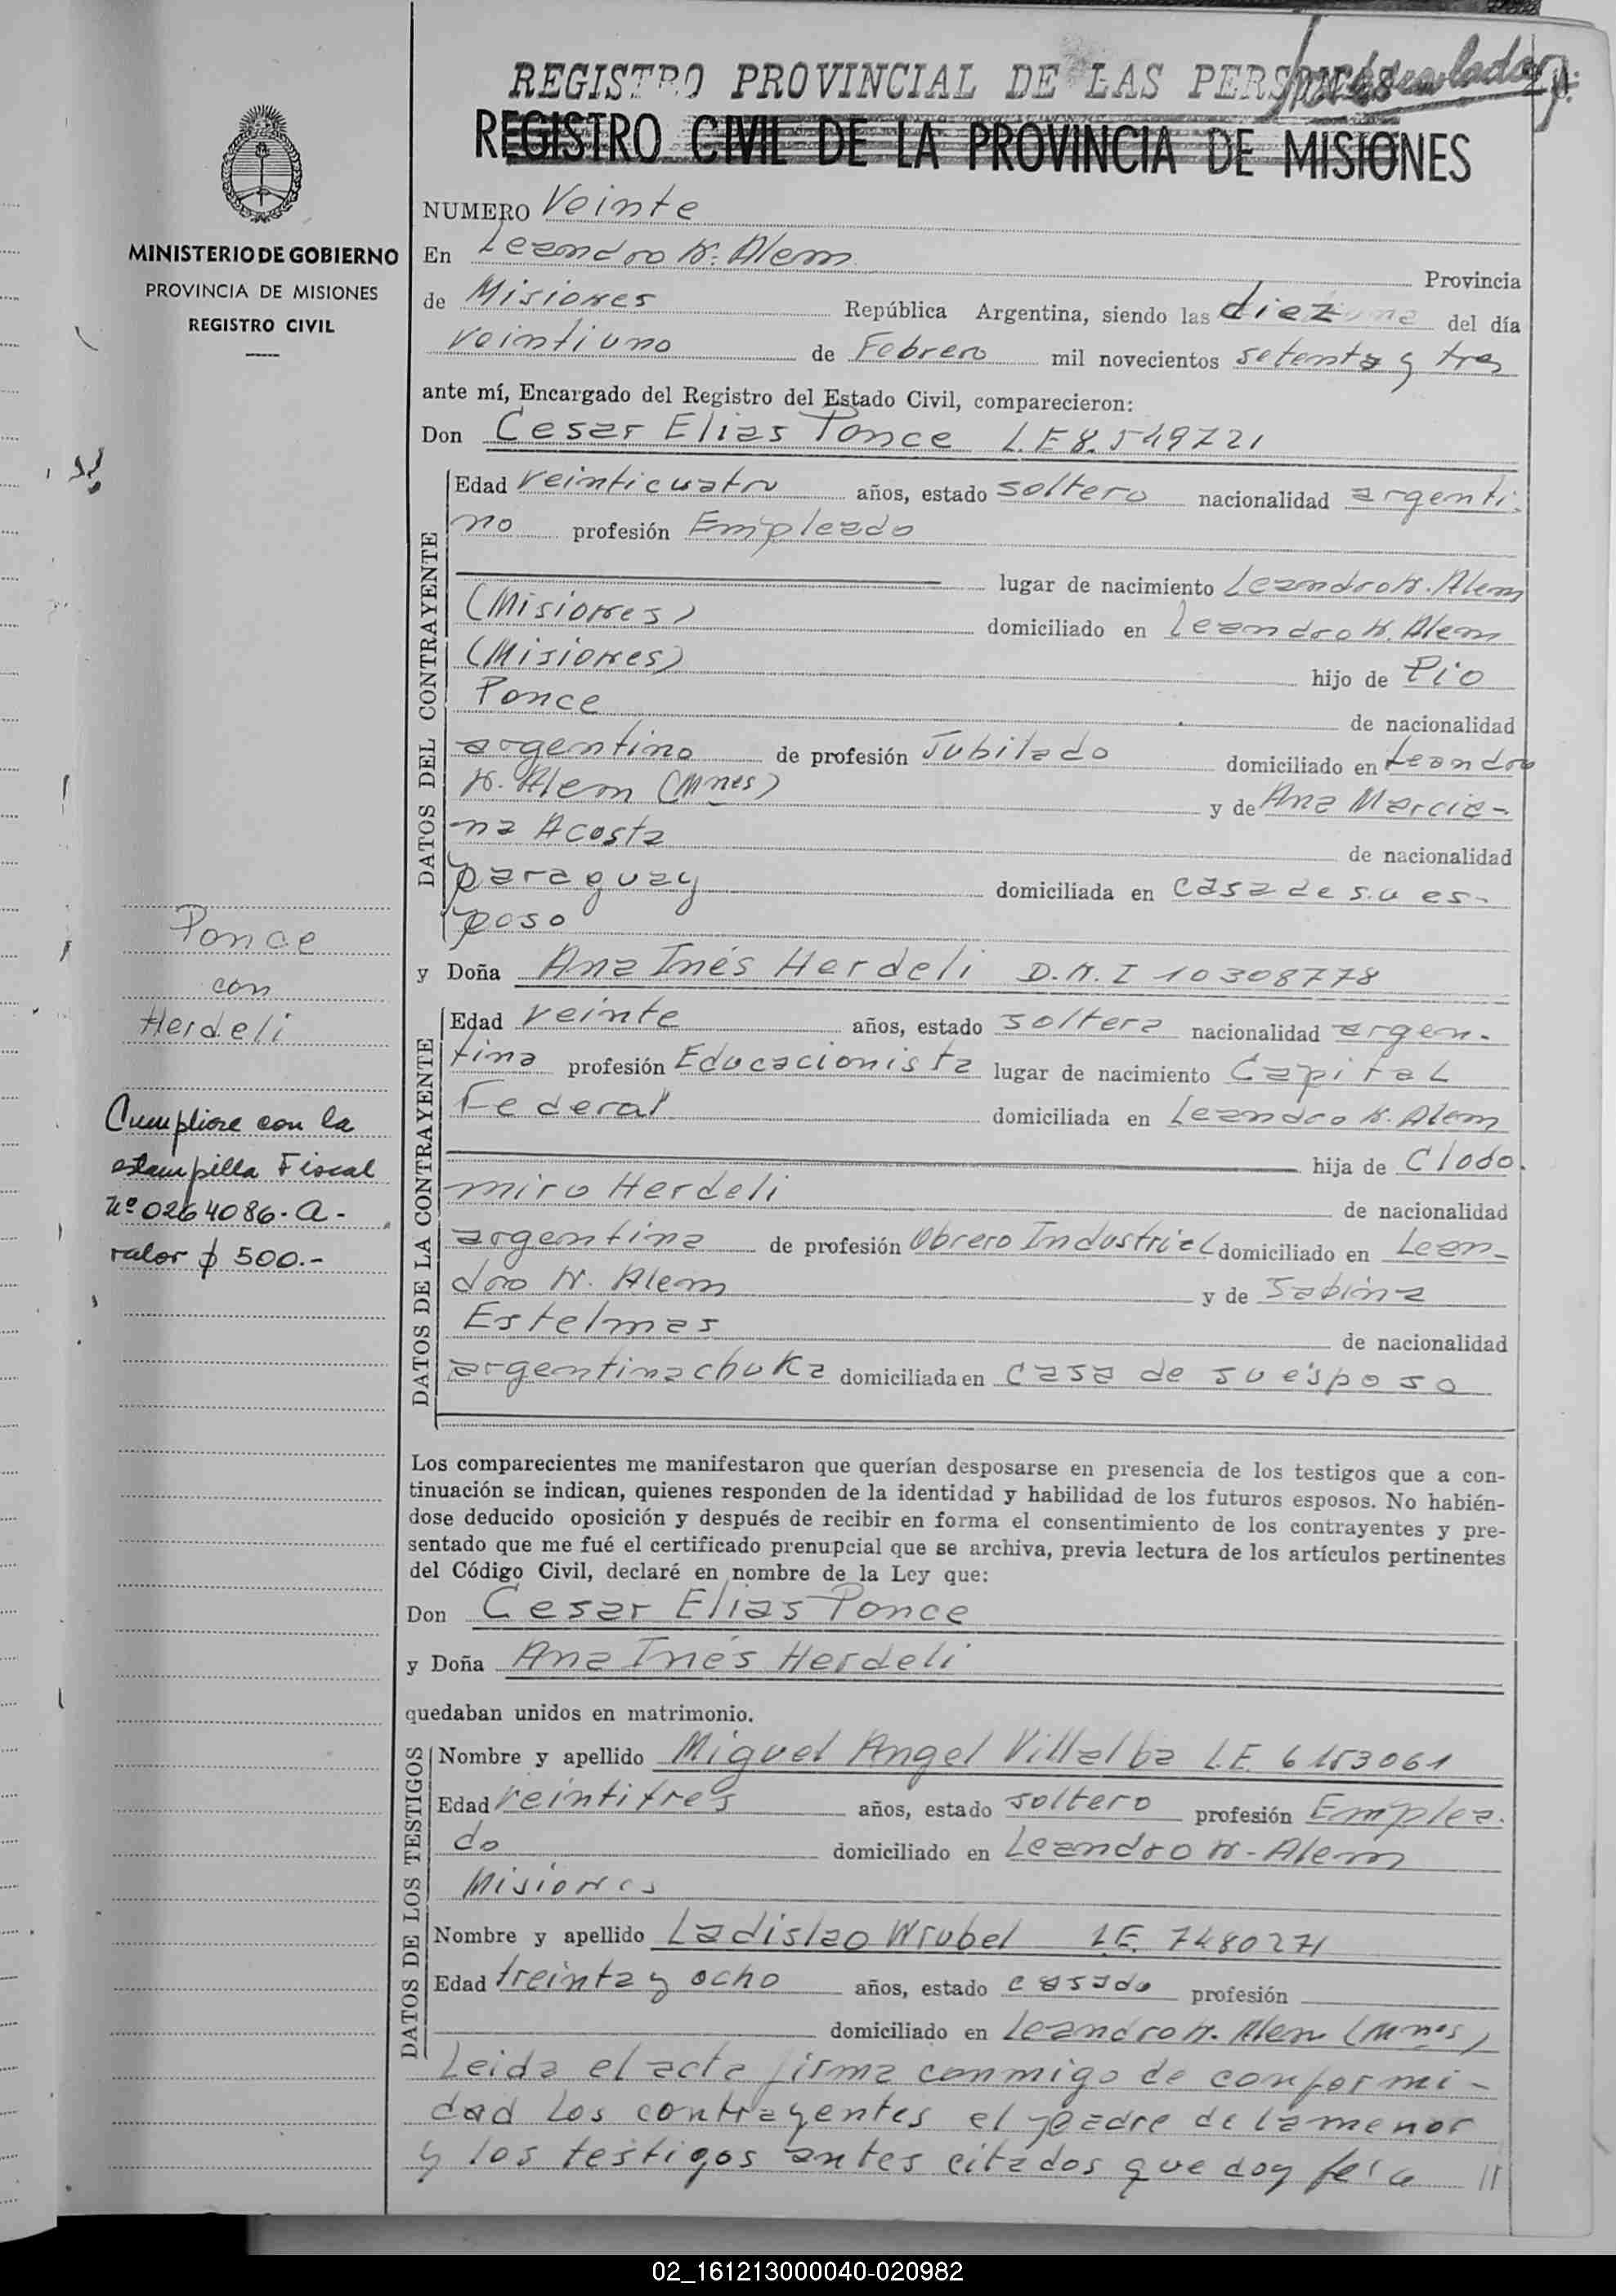 REGISTRO PROVINCIAL DE LAS PERSONAS
REGISTRO CIVIL DE LA PROVINCIA DE MISIONES
MINISTERIO DE GOBIERNO
PROVINCIA DE MISIONES
REGISTRO CIVIL
NUMERO Veinte
En Leandro N. Alem Provincia
de Misiones República Argentina, siendo las diez del día
veintiuno de Febrero mil novecientos setenta y tres
ante mí, Encargado del Registro del Estado Civil, comparecieron:
Don Cesar Elias Ponce L.E 8.549721
DATOS DEL CONTRAYENTE
Edad veinticuatro años, estado soltero nacionalidad argenti-
no profesión Empleado
lugar de nacimiento Leandro N. Alem
(Misiones) domiciliado en Leandro N. Alem
(Misiones) hijo de Pio
Ponce de nacionalidad
argentino de profesión Jubilado domiciliado en Leandro
N. Alem (Mnes) y de Ana Marcia-
na Acosta de nacionalidad
paraguay domiciliada en casa de su es-
poso
y Doña Ana Inés Herdeli D.N.I 10308778
DATOS DE LA CONTRAYENTE
Edad veinte años, estado soltera nacionalidad argen-
tina profesión Educacionista lugar de nacimiento Capital
Federal domiciliada en Leandro N. Alem
hija de Clodo-
miro Herdeli de nacionalidad
argentina de profesión Obrero Industrial domiciliado en Lean-
dro N. Alem y de Sabina
Estelmas de nacionalidad
argentina domiciliada en casa de su esposo
Ponce
con
Herdeli
Cumpliose con la
estampilla Fiscal
Nº 0264086-A-
valor $ 500.-
Los comparecientes me manifestaron que querían desposarse en presencia de los testigos que a con-
tinuación se indican, quienes responden de la identidad y habilidad de los futuros esposos. No habién-
dose deducido oposición y después de recibir en forma el consentimiento de los contrayentes y pre-
sentado que me fué el certificado prenupcial que se archiva, previa lectura de los artículos pertinentes
del Código Civil, declaré en nombre de la Ley que:
Don Cesar Elias Ponce
y Doña Ana Inés Herdeli
quedaban unidos en matrimonio.
DATOS DE LOS TESTIGOS
Nombre y apellido Miguel Angel Villalba L.E. 6153061
Edad veintitres años, estado soltero profesión Emplea-
do domiciliado en Leandro N. Alem
Misiones
Nombre y apellido Ladislao Wrubel L.E. 7480271
Edad treinta y ocho años, estado casado profesión
domiciliado en Leandro N. Alem (Mnes)
Leida el acta firma conmigo de conformi-
dad los contrayentes el padre de la menor
y los testigos antes citados que doy fe
02_161213000040-020982